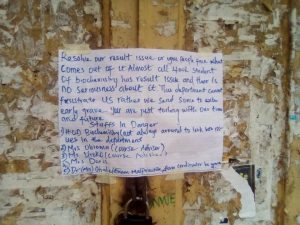 Resolve our result issue or you people face what
comes out of it Almost all 400L student
Of biochemistry has result issue and there is
no seriousness about it. This department cannot
frustrate us rather we send some to their
early grave. You are just toiling with our time
and future
Staffs In Danger
1) HOD Biochemistry (not always around to look into iss-
ues in the department
2) Mrs (Course Adviser)
3) Mrs (Course Adviser)
4) Mrs Doris
5) Dr (Mrs) (Exam malpractice, form coordinator be